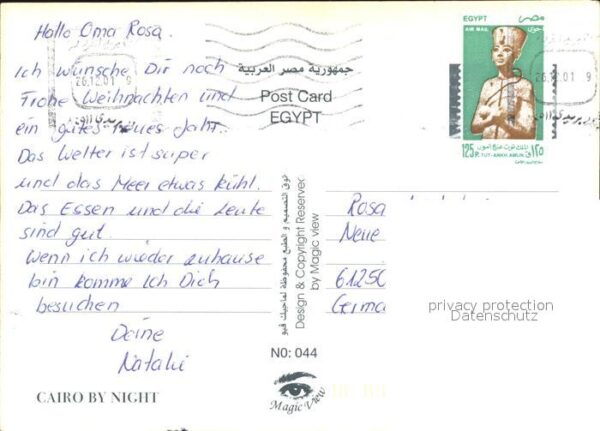 Hallo Oma Rosa.
Ich wünsche Dir noch
Frohe Weihnachten und
ein gutes neues Jahr.
Das Wetter ist super
und das Meer etwas kühl.
Das Essen und die Leute
sind gut.
Wenn ich wieder zuhause
bin komme Ich Dich
besuchen
Deine
Natalie
CAIRO BY NIGHT
جمهورية مصر العربية
Post Card
EGYPT
26.12.01 9
EGYPT
مصر
AIR MAIL
26.12.01 9
125 P.
TUT-ANKH-AMUN
١٢٥
Design & Copyright Reserver
by Magic view
N0: 044
Magic View
Rosa
Neue
61250
Germa
privacy protection
Datenschutz